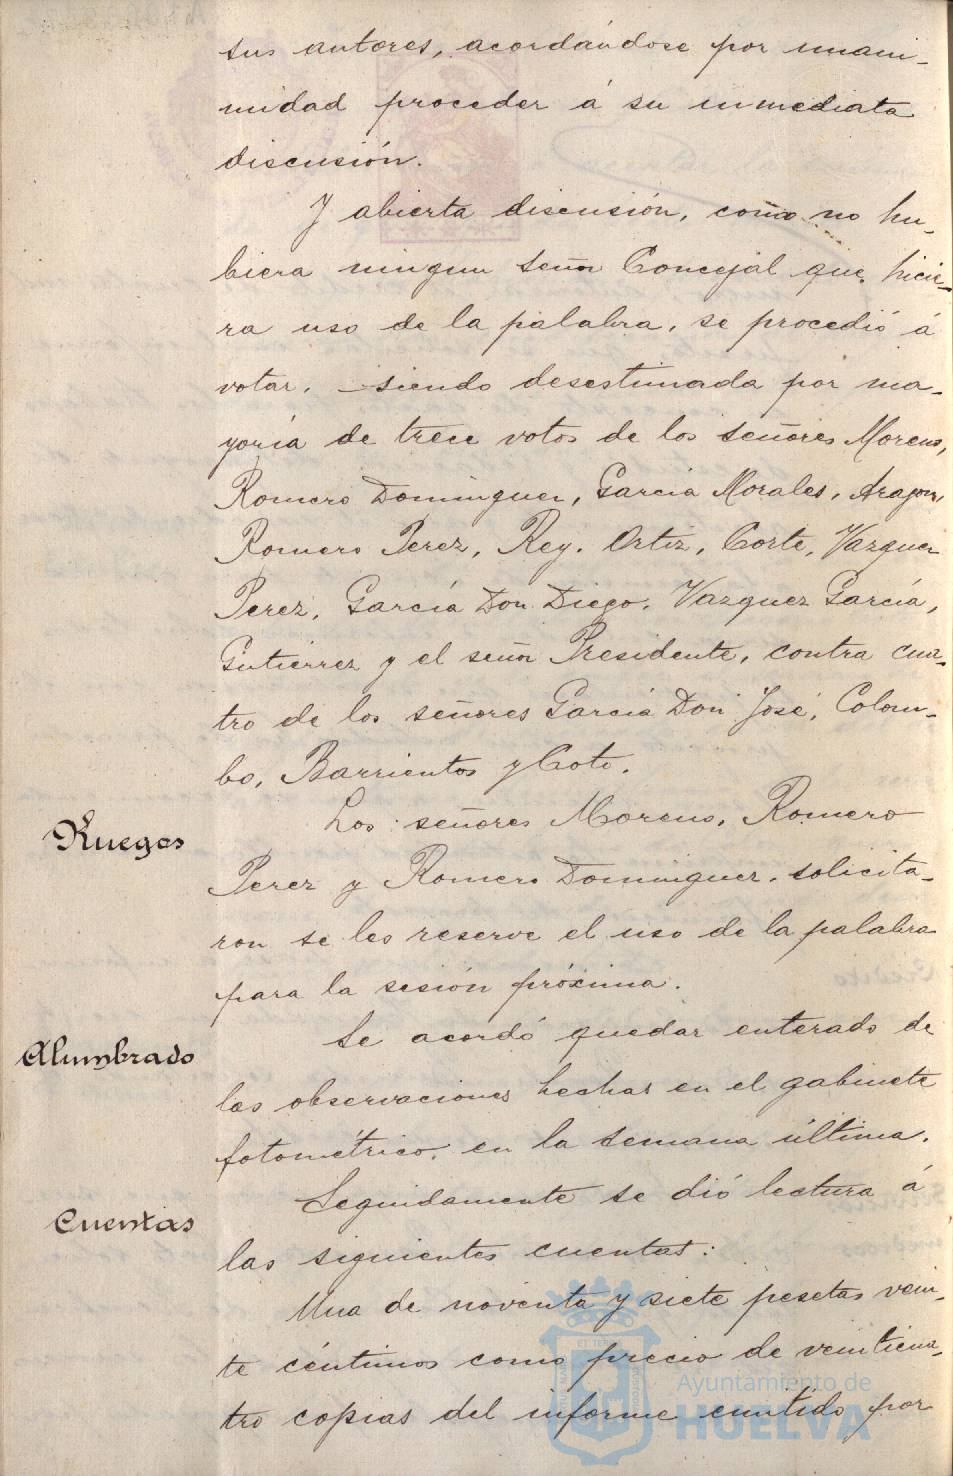 sus autores, acordándose por unani-
midad proceder á su inmediata
discusión.
Y abierta discusión, como no hu-
biera ningun señor Concejal que hicie-
ra uso de la palabra, se procedió á
votar, siendo desestimada por ma-
yoría de trece votos de los señores Moreno,
Romero Dominguez, Garcia Morales, Aragon,
Romero Perez, Rey, Ortiz, Corte, Vazquez
Perez, García Don Diego, Vazquez García,
Gutierrez y el señor Presidente, contra cua-
tro de los señores Garcia Don José, Colom-
bo, Barrientos y Coto.
Ruegos
Los señores Moreno, Romero
Perez y Romero Dominguez, solicita-
ron se les reserve el uso de la palabra
para la sesión próxima.
Alumbrado
Se acordó quedar enterado de
las observaciones hechas en el gabinete
fotométrico, en la semana última.
Cuentas
Seguidamente se dió lectura á
las siguientes cuentas:
Una de noventa y siete pesetas vein-
te céntimos como precio de veinticua-
tro copias del informe emitido por
Ayuntamiento de
HUELVA